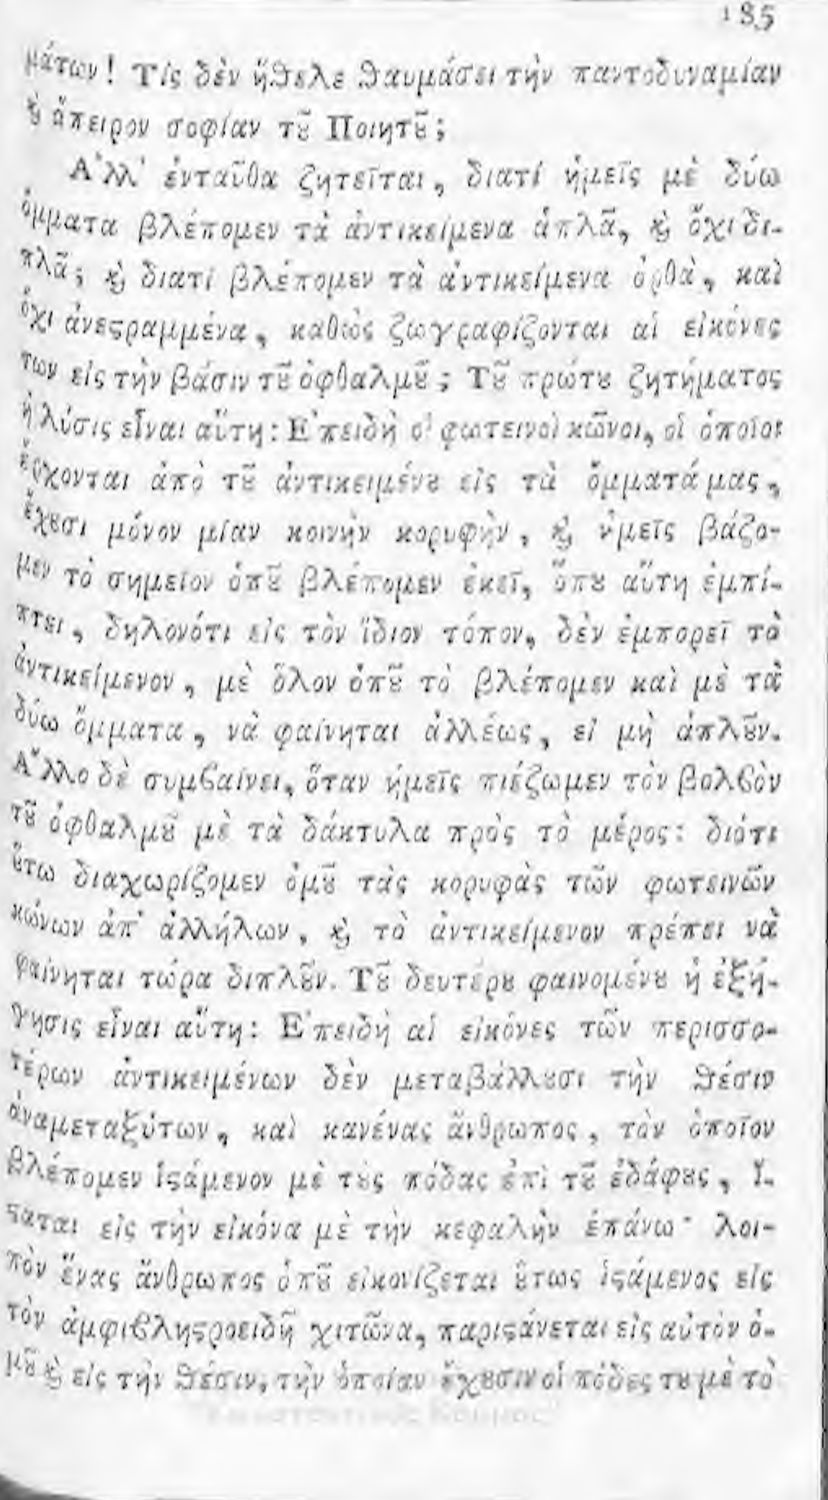 185
μάτων! Τίς δὲν ἤθελε θαυμάσει τὴν παντοδυναμίαν
ϗ̀ ἄπειρον σοφίαν τȣ͂ Ποιητȣ͂;
Ἀλλ' ἐνταῦθα ζητεῖται, διατί ἡμεῖς μὲ δύω
ὄμματα βλέπομεν τὰ ἀντικείμενα ἁπλᾶ, ϗ̀ ὄχι δι-
πλᾶ; ϗ̀ διατί βλέπομεν τὰ ἀντικείμενα ὀρθὰ, καὶ
ὄχι ἀνεϛραμμένα, καθὼς ζωγραφίζονται αἱ εἰκόνες
των εἰς τὴν βάσιν τȣ͂ ὀφθαλμȣ͂; Τȣ͂ πρώτȣ ζητήματος
ἡ λύσις εἶναι αὕτη: Ἐπειδὴ οἱ φωτεινοὶ κῶνοι, οἱ ὁποῖοι
ἔρχονται ἀπὸ τȣ͂ ἀντικειμένȣ εἰς τὰ ὄμματά μας,
ἔχȣσι μόνον μίαν κοινὴν κορυφὴν, ϗ̀ ἡμεῖς βάζο-
μεν τὸ σημεῖον ὁπȣ͂ βλέπομεν ἐκεῖ, ὅπȣ αὕτη ἐμπί-
πτει, δηλονότι εἰς τὸν ἴδιον τόπον, δὲν ἐμπορεῖ τὸ
ἀντικείμενον, μὲ ὅλον ὁπȣ͂ τὸ βλέπομεν καὶ μὲ τὰ
δύω ὄμματα, νὰ φαίνηται ἀλλέως, εἰ μὴ ἁπλȣ͂ν.
Ἄλλο δὲ συμβαίνει, ὅταν ἡμεῖς πιέζωμεν τὸν βολβὸν
τȣ͂ ὀφθαλμȣ͂ μὲ τὰ δάκτυλα πρὸς τὸ μέρος: διότι
ȣ̔́τω διαχωρίζομεν ὁμȣ͂ τὰς κορυφὰς τῶν φωτεινῶν
κώνων ἀπ' ἀλλήλων, ϗ̀ τὸ ἀντικείμενον πρέπει νὰ
φαίνηται τώρα διπλȣ͂ν. Τȣ͂ δευτέρȣ φαινομένȣ ἡ ἐξή-
γησις εἶναι αὕτη: Ἐπειδὴ αἱ εἰκόνες τῶν περισσο-
τέρων ἀντικειμένων δὲν μεταβάλλȣσι τὴν θέσιν
ἀναμεταξύτων, καὶ κανένας ἄνθρωπος, τὸν ὁποῖον
βλέπομεν ἱϛάμενον μὲ τȣ̀ς πόδας ἐπὶ τȣ͂ ἐδάφȣς, ἵ-
ϛαται εἰς τὴν εἰκόνα μὲ τὴν κεφαλὴν ἐπάνω· λοι-
πὸν ἕνας ἄνθρωπος ὁπȣ͂ εἰκονίζεται ȣ̔́τως ἱϛάμενος εἰς
τὸν ἀμφιβληϛροειδῆ χιτῶνα, παριϛάνεται εἰς αὐτὸν ὁ-
μȣ͂ ϗ̀ εἰς τὴν θέσιν, τὴν ὁποίαν ἔχȣσιν οἱ πόδες τȣ μὲ τὸ